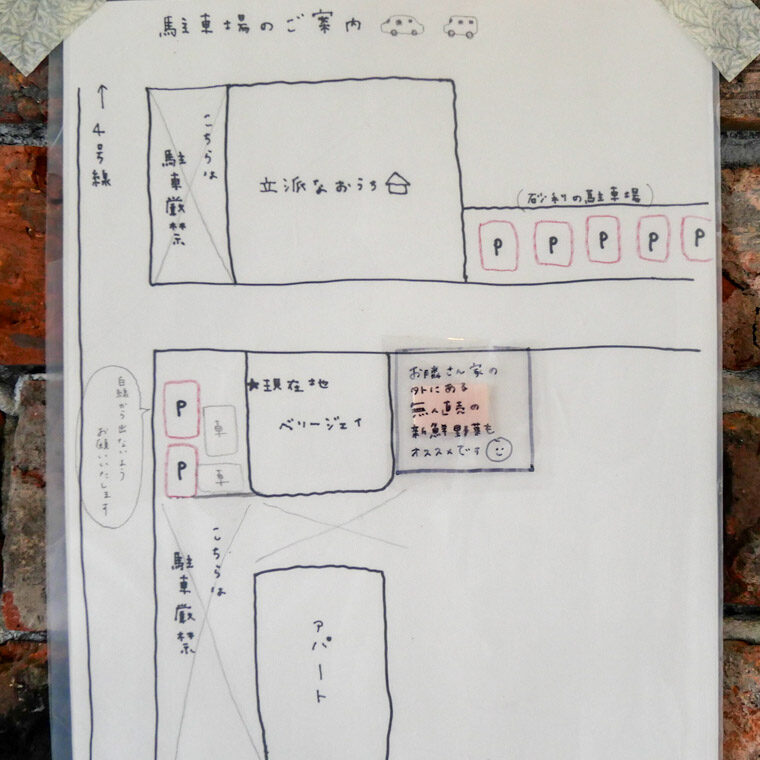 駐車場のご案内
↑4号線
こちらは
駐車厳禁
立派なおうち
(砂利の駐車場)
P P P P P
自線から出ないよう
お願いいたします
P
車
P
車
★現在地
ベリージェイ
お隣さん家の
外にある
無人直売の
新鮮野菜も
オススメです
こちらは
駐車厳禁
アパート